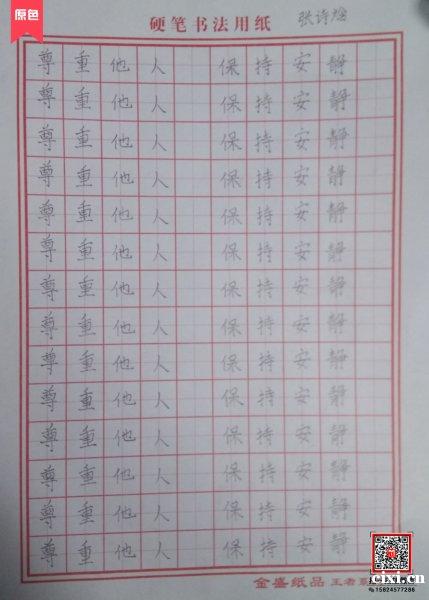 原色
硬笔书法用纸 张诗烩
尊重他人 保持安静
尊重他人 保持安静
尊重他人 保持安静
尊重他人 保持安静
尊重他人 保持安静
尊重他人 保持安静
尊重他人 保持安静
尊重他人 保持安静
尊重他人 保持安静
尊重他人 保持安静
尊重他人 保持安静
尊重他人 保持安静
尊重他人 保持安静
尊重他人 保持安静
金盛纸品 王者
cixi.cn
15824577286